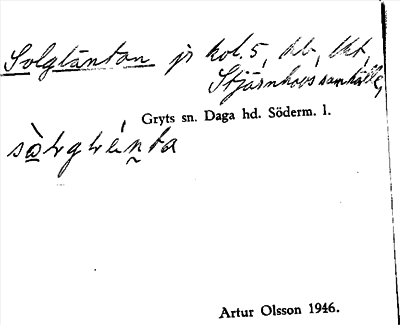 Solgläntan jr kol. 5, bb, tkt,
Stjärnhovs samhälle,
Gryts sn. Daga hd. Söderm. l.
Artur Olsson 1946.